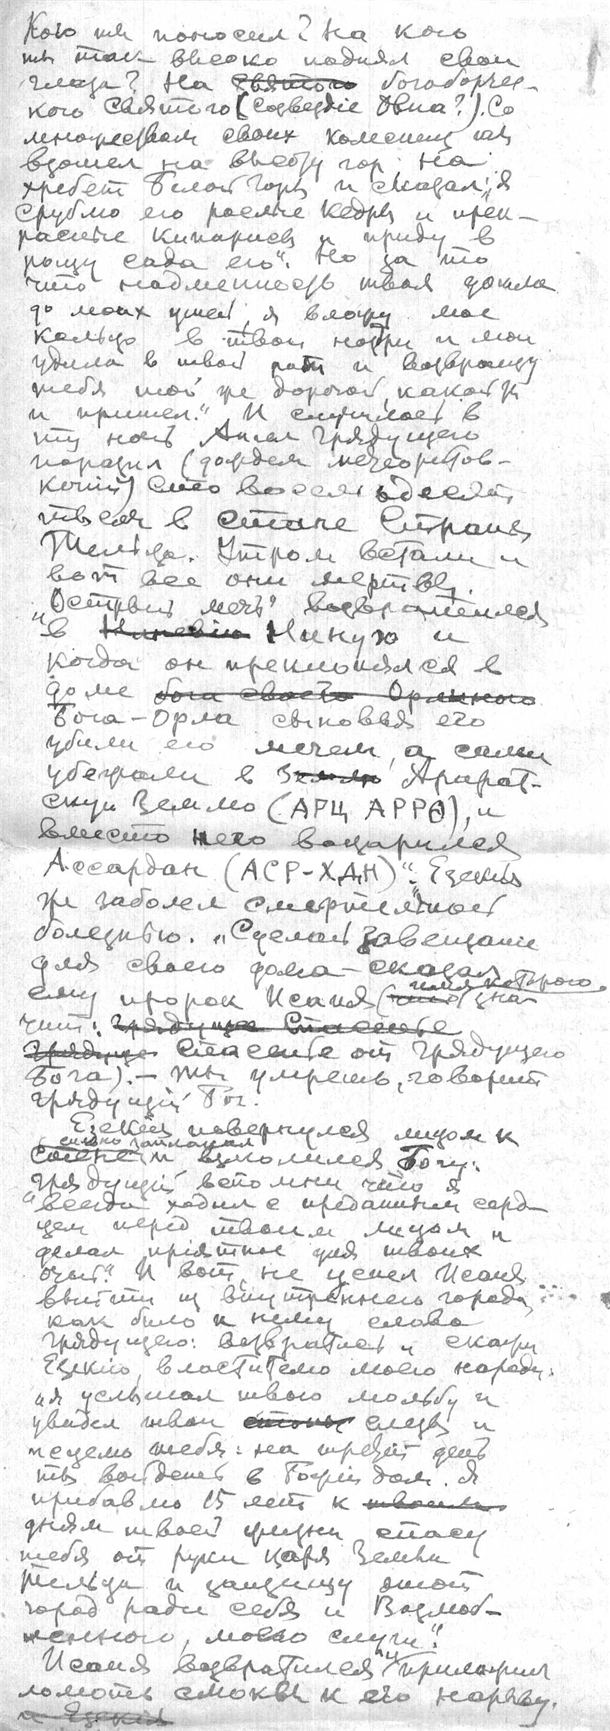 Кого ты поносил? На кого
ты так высоко поднял свои
глаза? На святого богоборчес-
кого Святого (Созвездіе Овна?). Со
множеством своих колесниц ты
взошел на высоту гор на
хребет Белой Горы и сказал: „я
срублю его рослые кедры и прек-
расные кипарисы и приду в
рощу сада его“. Но за то
что надменность твоя дошла
до моих ушей, я вложу мое
кольцо в твои ноздри и мои
удила в твой рот и возвращу
тебя той же дорогой, какой ты
и пришел.“ И случилось в
ту ночь Ангел Грядущего
поразил (дождем метеоритов-
) сто восемьдесят
тысяч в стане Страны
Тельца. Утром встали и
вот все они мертвы.
„Острый мечъ“ возвратился
в Ниневію Ниную и
когда он преклонялся в
доме бога своего Орлиного
Бога-Орла сыновья его
убили его мечем, а сами
убежали в Землю Арарат-
скую Землю (АРЦ АРРΘ), и
вместо него воцарился
Ассардан (АСР-ХДН)“. Езекія
же заболел смертельной
болезнью. „Сделай завещание
для своего дома – сказал
ему пророк Исаія (имя которого зна-
чит: Грядущее Спасенье
Грядущее Спасенье от Грядущего
Бога). – Ты умрешь, говорит
Грядущій Бог.
Езекія повернулся лицом к
стене сильно заплакал и взмолился Богу:
„Грядущій вспомни что я
всегда ходил с преданным серд-
цем перед твоим лицом и
делал пріятное для твоих
очей“. И вот, не успел Исаія
выйти из внутреннего города,
как было к нему слово
Грядущего: возвратись и скажи
Езекію, властителю моего народу:
„я услышал твою мольбу и
увидел твои слезы и
исцелю тебя: на третій день
ты войдешь в Божій дом. Я
прибавлю 15 лет к твоим
дням твоей жизни спасу
тебя от руки царя Земли
Тельца и защищу этот
город ради себя и Возлюб-
ленного, моего слуги“.
Исаія возвратился и приложил
ломоть смоквы к его нарыву.
и Езекія